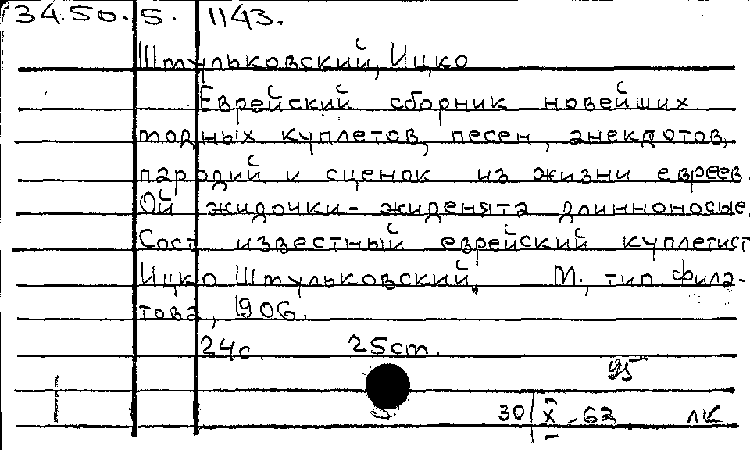 34.50. 5. 1143.
Штульковский, Ицко
Еврейский сборник новейших
модных куплетов, песен, анекдотов,
пародий и сценок из жизни евреев.
Ой жидочки - жиденята длинноносые.
Сост известный еврейский куплетист
Ицко Штульковский. М., тип Фила-
това, 1906.
24с 25ст.
95
30/X-62 ЛК